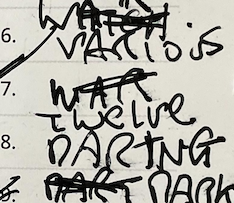 6. WATCH
VARIOUS
7. WAR
TWELVE
8. DARING
DART DARK